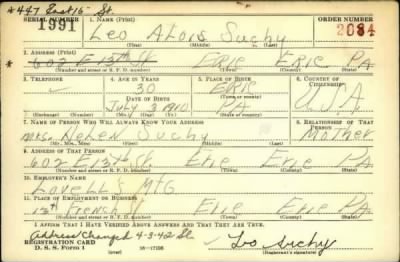 *447 East 16 St.
SERIAL NUMBER 1. NAME (Print) ORDER NUMBER
1991 Leo Alois Suchy 2084
(First) (Middle) (Last)
2. ADDRESS (Print)
602 E 13th St ERIE ERIE PA
(Number and street or R. F. D. number) (Town) (County) (State)
3. TELEPHONE 4. AGE IN YEARS 5. PLACE OF BIRTH 6. COUNTRY OF CITIZENSHIP
30 ERIE
DATE OF BIRTH (Town or county)
July 3 1910 PA U.S.A.
(Exchange) (Number) (Mo.) (Day) (Yr.) (State or country)
7. NAME OF PERSON WHO WILL ALWAYS KNOW YOUR ADDRESS 8. RELATIONSHIP OF THAT PERSON
Mrs Helen Suchy Mother
(Mr., Mrs., Miss) (First) (Middle) (Last)
9. ADDRESS OF THAT PERSON
602 E 13th St. Erie Erie PA
(Number and street or R. F. D. number) (Town) (County) (State)
10. EMPLOYER'S NAME
Lovell's Mfg
11. PLACE OF EMPLOYMENT OR BUSINESS
13th French St Erie Erie PA
(Number and street or R. F. D. number) (Town) (County) (State)
I AFFIRM THAT I HAVE VERIFIED ABOVE ANSWERS AND THAT THEY ARE TRUE.
Address Changed 4-3-42
REGISTRATION CARD Leo Suchy
D. S. S. Form 1 (over) (Registrant's signature)